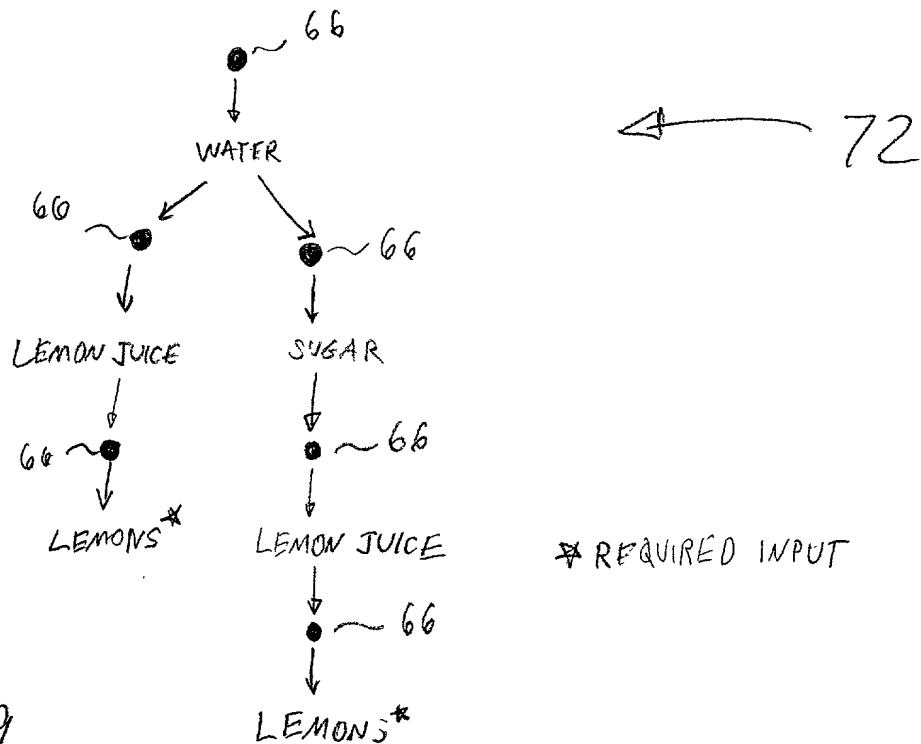 66
72
WATER
66
66
LEMON JUICE
SUGAR
66
66
LEMONS*
LEMON JUICE
* REQUIRED INPUT
66
LEMONS*
9